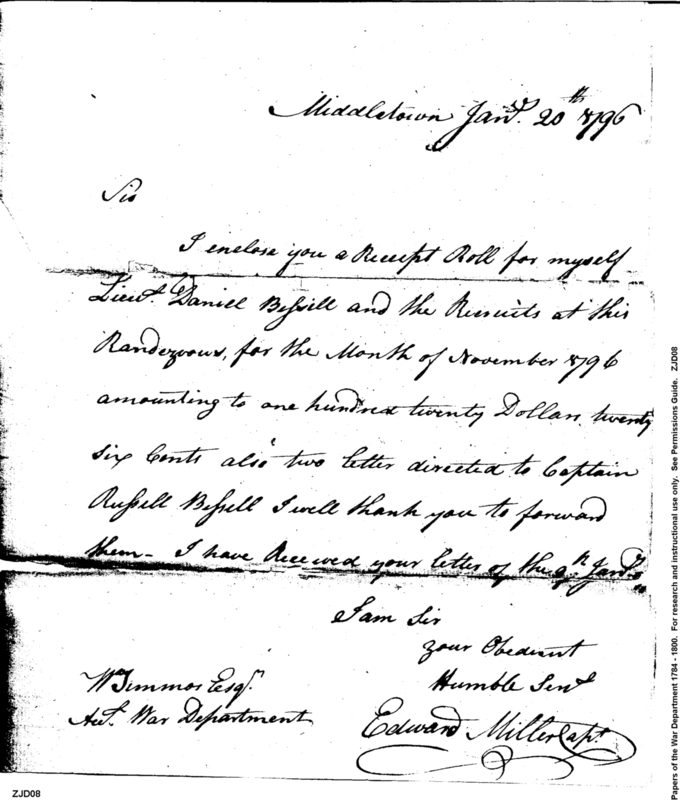 Middletown Jany. 20th 1796
Sir
I enclose you a Receipt Roll for myself
Lieut. Daniel Bissell and the Recruits at this
Randezvous, for the Month of November 1796
amounting to one hundred twenty Dollars twenty
six Cents also two letter directed to Captain
Russell Bissell I will thank you to forward
them - I have Received your letter of the 9th Jany.
I am Sir
your Obedient
Humble Servt
W Simmos Esqr.
Act. War Department
Edward Miller Capt.
ZJD08
Papers of the War Department 1784 - 1800. For research and instructional use only. See Permissions Guide. ZJD08